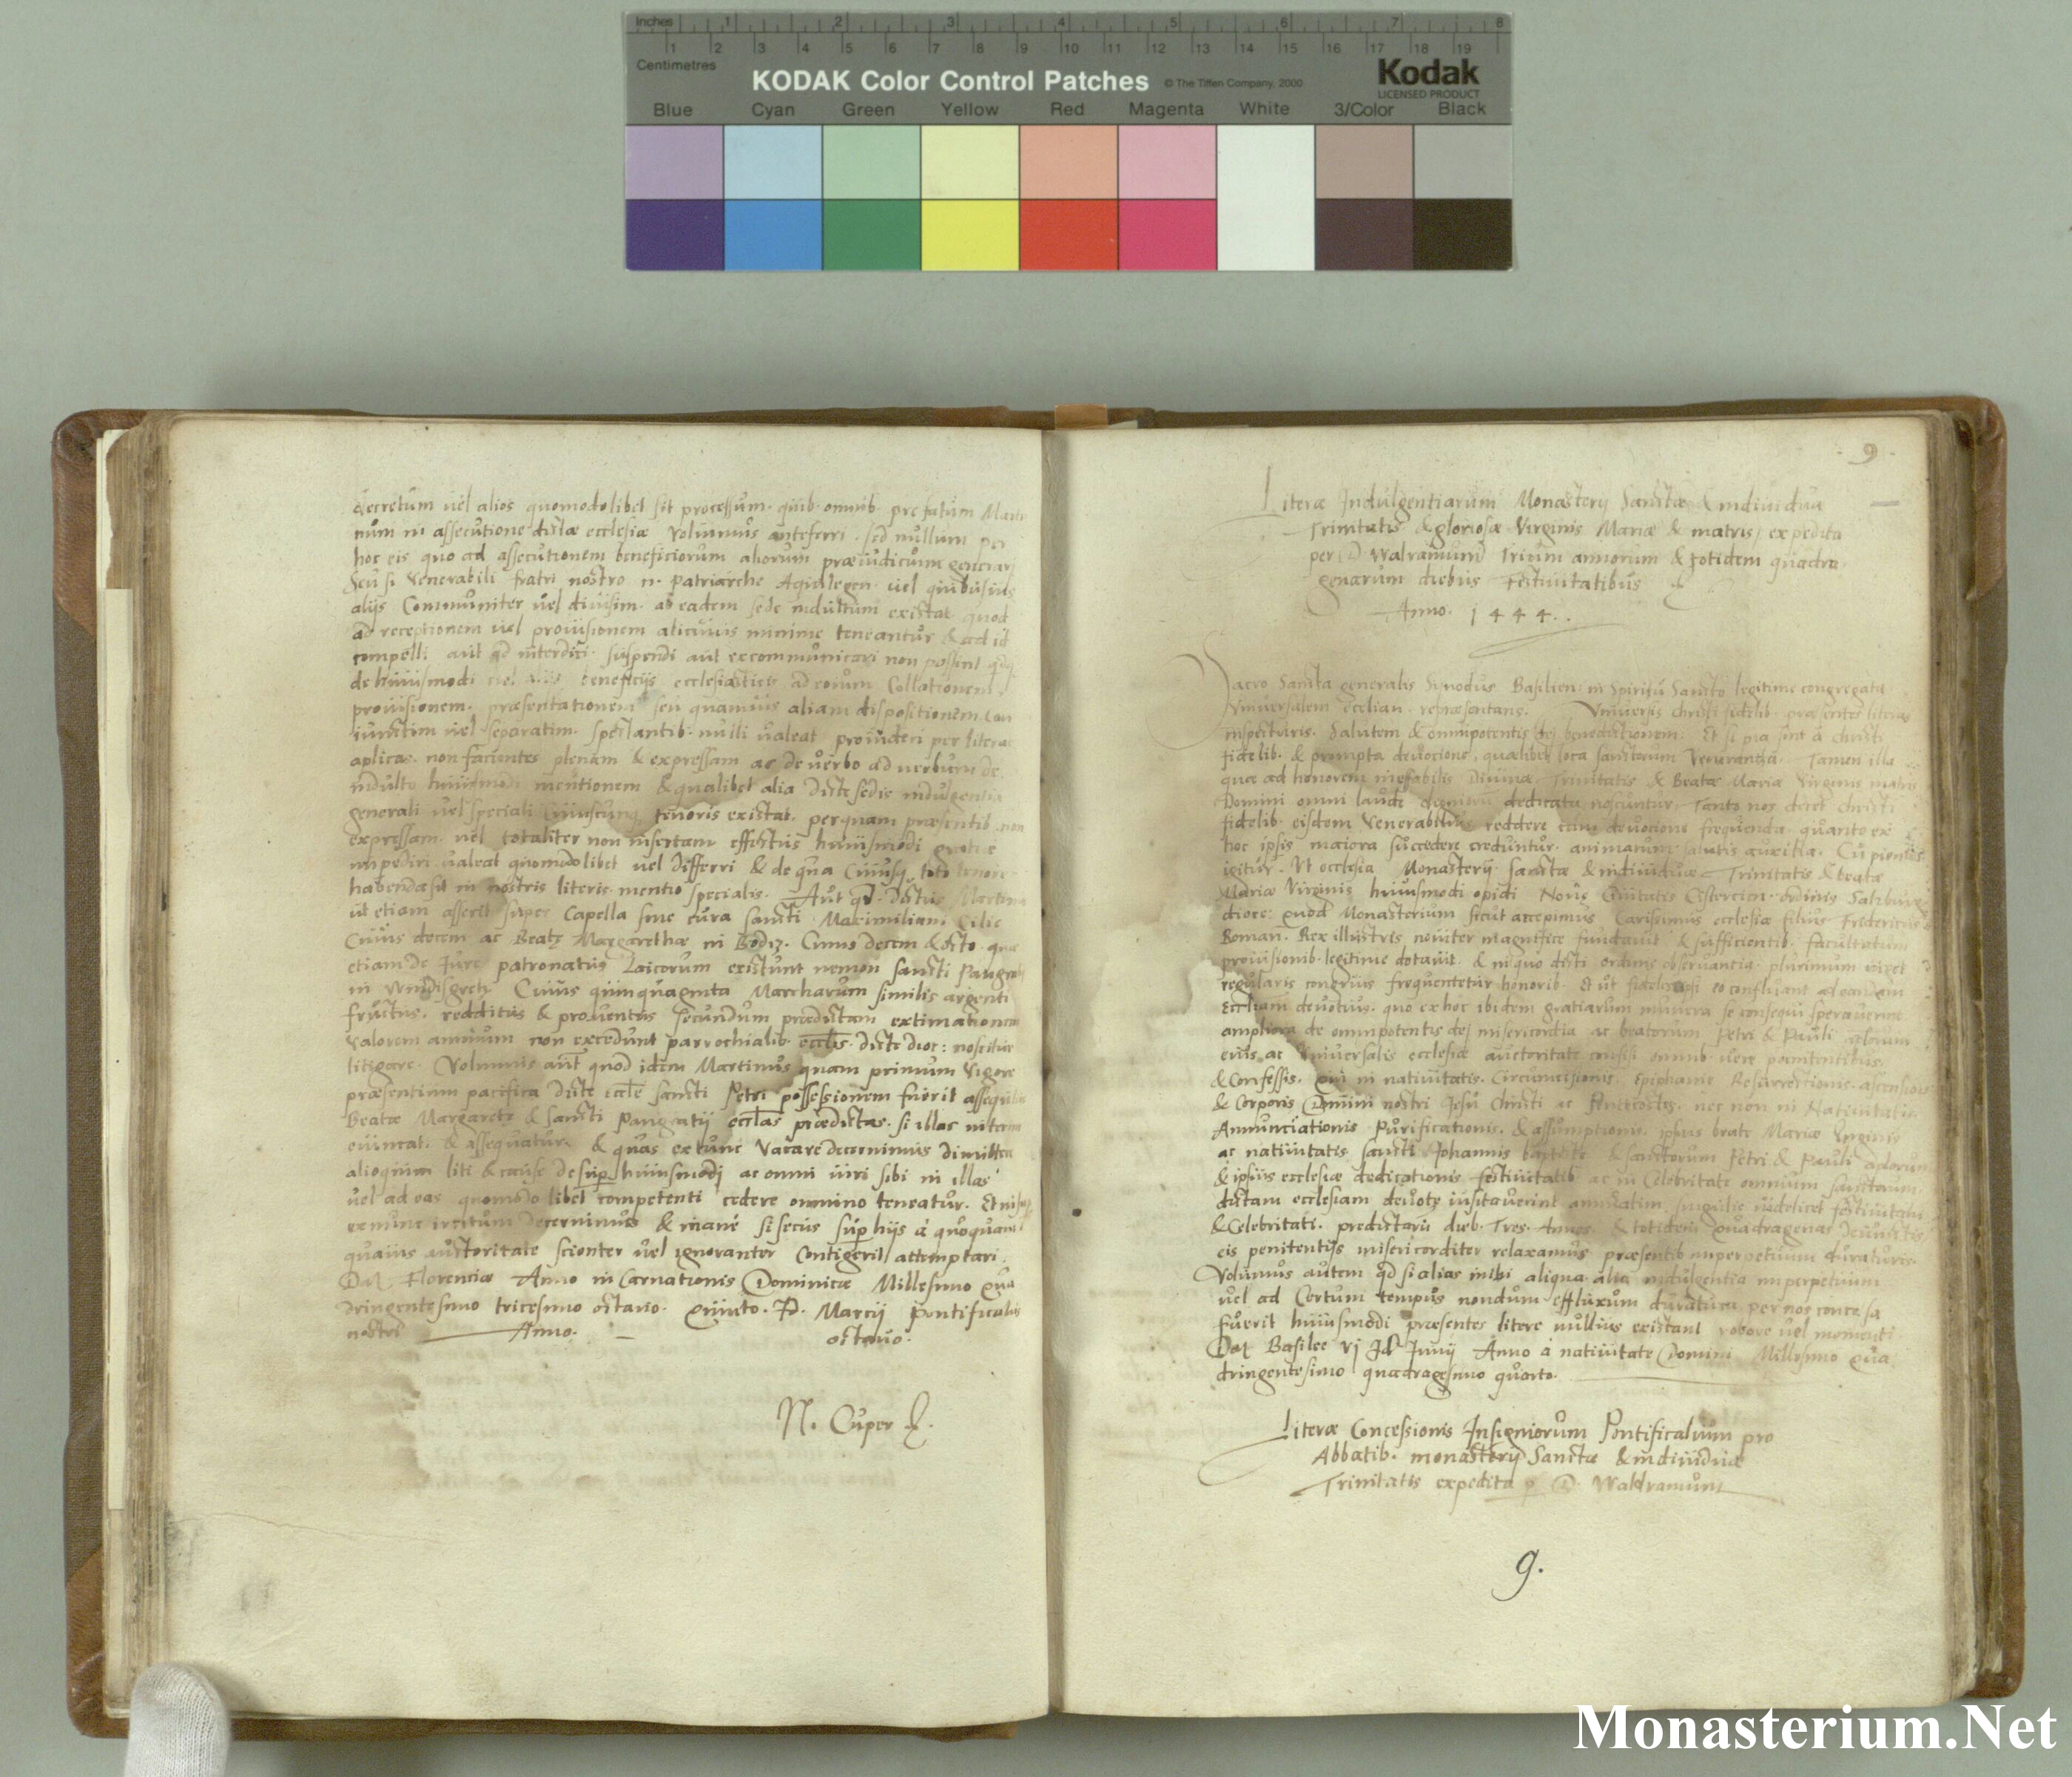 Inches 1 2 3 4 5 6 7 8
1 2 3 4 5 6 7 8 9 10 11 12 13 14 15 16 17 18 19
Centimetres
KODAK Color Control Patches © The Tiffen Company, 2000 Kodak
LICENSED PRODUCT
Blue Cyan Green Yellow Red Magenta White 3/Color Black
decretum vel alios quomodolibet sit processum. quib. omnib. prefatum
num in assecutione dictæ ecclesiæ volumus anteferri. sed nullum per
hoc eis quo ad assecutionem beneficiorum aliorum præiudicium generari
Seu si Venerabili fratri nostro n. patriarche Aquilegen. vel quibusuis
alijs Communiter vel diuisim. ab eadem sede indultum existat quod
ad receptionem vel prouisionem alicuius minime teneantur & ad id
compelli aut qd interdici. suspendi aut excommunicari non possint qdq
de huiusmodi vel alijs beneficijs ecclesiasticis ad eorum Collationem.
prouisionem. præsentationem seu quamuis aliam dispositionem con
iunctim vel separatim. spectantib. nulli valeat prouideri per literas
aplicas. non facientes plenam & expressam ac de verbo ad verbum de
indulto huiusmodi mentionem & qualibet alia dicte sedis indulgentia
generali vel speciali Cuiuscunq tenoris existat. per quam præsentib. non
expressam vel totaliter non insertam effectus huiusmodi gratie
impediri valeat quomodolibet vel differri & de qua Cuiusq toto tenore
habenda sit in nostris literis mentio specialis. Aut qd. dictus Martinus
ut etiam asserit super Capella sine cura Sancti Maximiliani Cilie
Cuius decem ac Beate Margarethæ in Cuius decem & octo. quæ
etiam de Jure patronatus Laicorum existunt nemon sancti Pangratij
in windisgretz Cuius quinquaginta Marcharum similis argenti
fructus. redditus & prouentus secundum prædictam extimationem
valorem annuum non excedunt parrochialib. eccliis. dicte dioc: noscitur
litigare. Volumus aut quod idem Martinus quam primum vigore
præsentium pacifica dicte eccle sancti Petri possessionem fuerit assequutus
Beatæ Margarete & Sancti Pangratij ecclas prædictas. si illas interim
euincat. & assequatur. & quas extunc Vacare decernimus dimittere
alioquin liti & cause desup huiusmodj ac omni iuri sibi in illas
vel ad eas quomodo libet competenti cedere omnino teneatur. Et nisi
exnunc irritum decernimus & inane si secus sup hijs á quoquam
quauis auctoritate scienter vel ignoranter Contigerit attemptari.
Dat Florenciæ Anno incarnationis Dominicæ Millesimo qua
dringentesimo tricesimo octauo. Quinto. D. Marcij Pontificatus
nostri Anno. octauo.
N. Cuper
9
Literæ Indulgentiarum Monasterij Sanctæ & indiuiduæ
Trinitatis & gloriosæ Virginis Mariæ & matris, expedita
per D Walramum Trium annorum & totidem quadra
genarum diebus Festiuitatibus
Anno. 1444.
Sacro Sancta generalis Synodus Basilien. in Spiritu Sancto legitime congregata
Vniuersalem ecclian. repræsentans. Vniuersis christi fidelib. præsentes literas
inspecturis. Salutem & omnipotentis dej benedictionem. Et si pia sint á christi
fidelib. & prompta deuocione, qualibet loca sanctorum Veneranda. Tamen illa
quæ ad honorem ineffabilis Diuinæ Trinitatis & Beatæ Mariæ Virginis matris
Domini omni laude dedicata noscuntur, Tanto nos decet christi
fidelib. eisdem Venerabilius reddere deuocione frequenda. quanto ex
hoc ipsis maiora succedere creduntur. animarum salutis auxilia. Cupientes
igitur. Vt ecclesia Monasterij sanctæ & indiuiduæ Trinitatis & beatæ
Mariæ Virginis huiusmodi opidi Nouæ Ciuitatis Cistercien. ordinis Salzburg.
dioce: quod Monasterium sicut accepimus Carissimus ecclesiæ filius Fredericus
Roman. Rex illustris nouiter magnifice fundauit & sufficientib. facultatum
prouisionib. legitime dotauit. & in quo dicti ordinis obseruantia plurimum viget
regularis congruis frequentetur honorib. Et ut fideles eo confluant ad eandem
Eccliam deuotius. quo ex hoc ibidem gratiarum munera se consequi sperauerint
ampliora de omnipotentis dej misericordia ac beatorum Petri & Pauli aplorum
eius ac Vniuersalis ecclesiæ auctoritate confisi omnib. vere poenitentibus
& Confessis. qui in natiuitatis. Circumcisionis. Epiphanie Resurrectionis. ascensionis
& Corporis Domini nostri Jesu Christi ac Penthecostes. nec non in Natiuitatis
Annunciationis Purificationis. & assumptionis. ipsius beate Mariæ Virginis
ac natiuitatis sancti Johannis baptiste & sanctorum Petri & Pauli aplorum
& ipsius ecclesiæ dedicationis festiuitatib ac in Celebritate omnium sanctorum
dictam ecclesiam deuote visitauerint annuatim singulis videlicet festiuitatum
& Celebritati. predictaru dieb. Tres. Annos & totidem Quadragenas deiunctis
eis penitentijs misericorditer relaxamus præsentib. imperpetuum duraturis.
Volumus autem qd si alias inibi aliqua alia indulgentia imperpetuum
vel ad Certum tempus nondum effluxum duratura per nos concessa
fuerit huiusmodi præsentes litere nullius existant robore vel momenti
Dat Basilee vj Jd Junij Anno á natiuitate Domini Millesimo qua
dringentesimo quadragesimo quarto.
Literæ Concessionis Insigniorum Pontificalium pro
Abbatib. monasterij Sanctæ & indiuiduæ
Trinitatis expedita p D. Waldramum
9.
Monasterium.Net